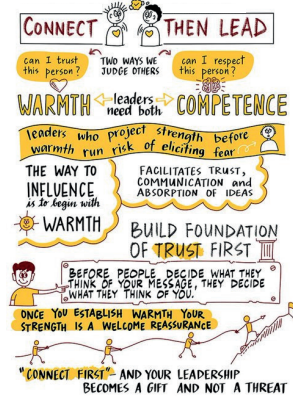 CONNECT THEN LEAD
can I trust
this person?
TWO WAYS WE
JUDGE OTHERS
can I respect
this person?
WARMTH
leaders
need both
COMPETENCE
leaders who project strength before
warmth run risk of eliciting fear
THE WAY TO
INFLUENCE
is to begin with
WARMTH
FACILITATES TRUST,
COMMUNICATION and
ABSORPTION OF IDEAS
BUILD FOUNDATION
OF TRUST FIRST
BEFORE PEOPLE DECIDE WHAT THEY
THINK OF YOUR MESSAGE, THEY DECIDE
WHAT THEY THINK OF YOU.
ONCE YOU ESTABLISH WARMTH YOUR
STRENGTH IS A WELCOME REASSURANCE
"CONNECT FIRST" - AND YOUR LEADERSHIP
BECOMES A GIFT AND NOT A THREAT